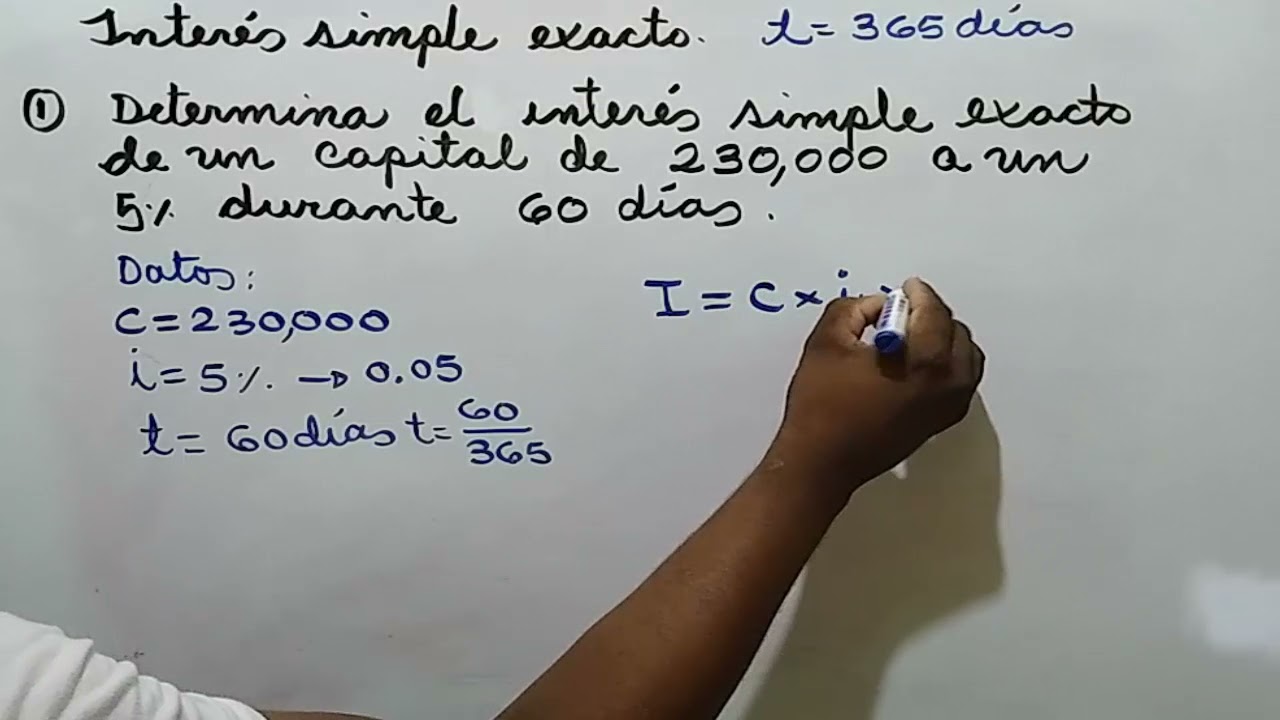 Interés simple exacto. t = 365 días
① Determina el interés simple exacto
de un capital de 230,000 a un
5% durante 60 días.
Datos:
C = 230,000
i = 5% → 0.05
t = 60 días t = 60/365
I = C × i